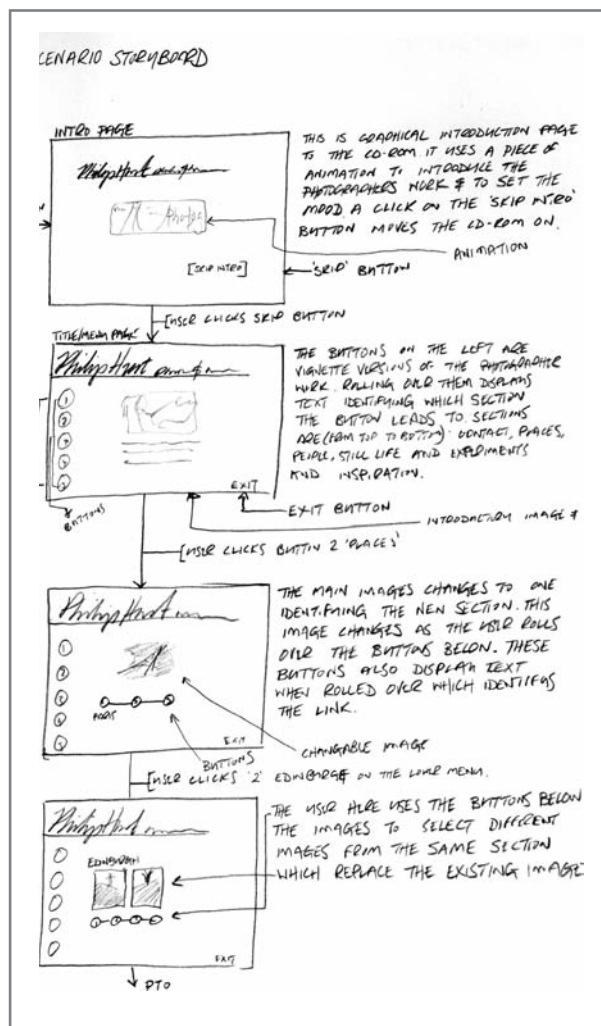 CENARIO STORYBOARD
INTRO PAGE
Philip Hunt
Photos
[SKIP INTRO]
THIS IS GRAPHICAL INTRODUCTION PAGE
TO THE CD-ROM. IT USES A PIECE OF
ANIMATION TO INTRODUCE THE
PHOTOGRAPHERS WORK & TO SET THE
MOOD. A CLICK ON THE 'SKIP INTRO'
BUTTON MOVES THE CD-ROM ON.
ANIMATION
'SKIP' BUTTON
[USER CLICKS SKIP BUTTON
TITLE/MENU PAGE
Philip Hunt
1
2
3
EXIT
BUTTONS
THE BUTTONS ON THE LEFT ARE
VIGNETTE VERSIONS OF THE PHOTOGRAPHER
WORK. ROLLING OVER THEM DISPLAYS
TEXT IDENTIFYING WHICH SECTION
THE BUTTON LEADS TO. SECTIONS
ARE (FROM TOP TO BOTTOM): CONTACT, PLACES,
PEOPLE, STILL LIFE AND EXPERIMENTS
AND INSPIRATION.
EXIT BUTTON
INTRODUCTORY IMAGE &
[USER CLICKS BUTTON 2 'PLACES'
Philip Hunt
1
2
PARIS
EXIT
THE MAIN IMAGES CHANGES TO ONE
IDENTIFYING THE NEW SECTION. THIS
IMAGE CHANGES AS THE USER ROLLS
OVER THE BUTTONS BELOW. THESE
BUTTONS ALSO DISPLAY TEXT
WHEN ROLLED OVER WHICH IDENTIFIES
THE LINK.
CHANGABLE IMAGE
BUTTONS
[USER CLICKS '2' ON THE LOWER MENU.
Philip Hunt
EDINBURGH
EXIT
THE USER HERE USES THE BUTTONS BELOW
THE IMAGES TO SELECT DIFFERENT
IMAGES FROM THE SAME SECTION
WHICH REPLACE THE EXISTING IMAGE
PTO